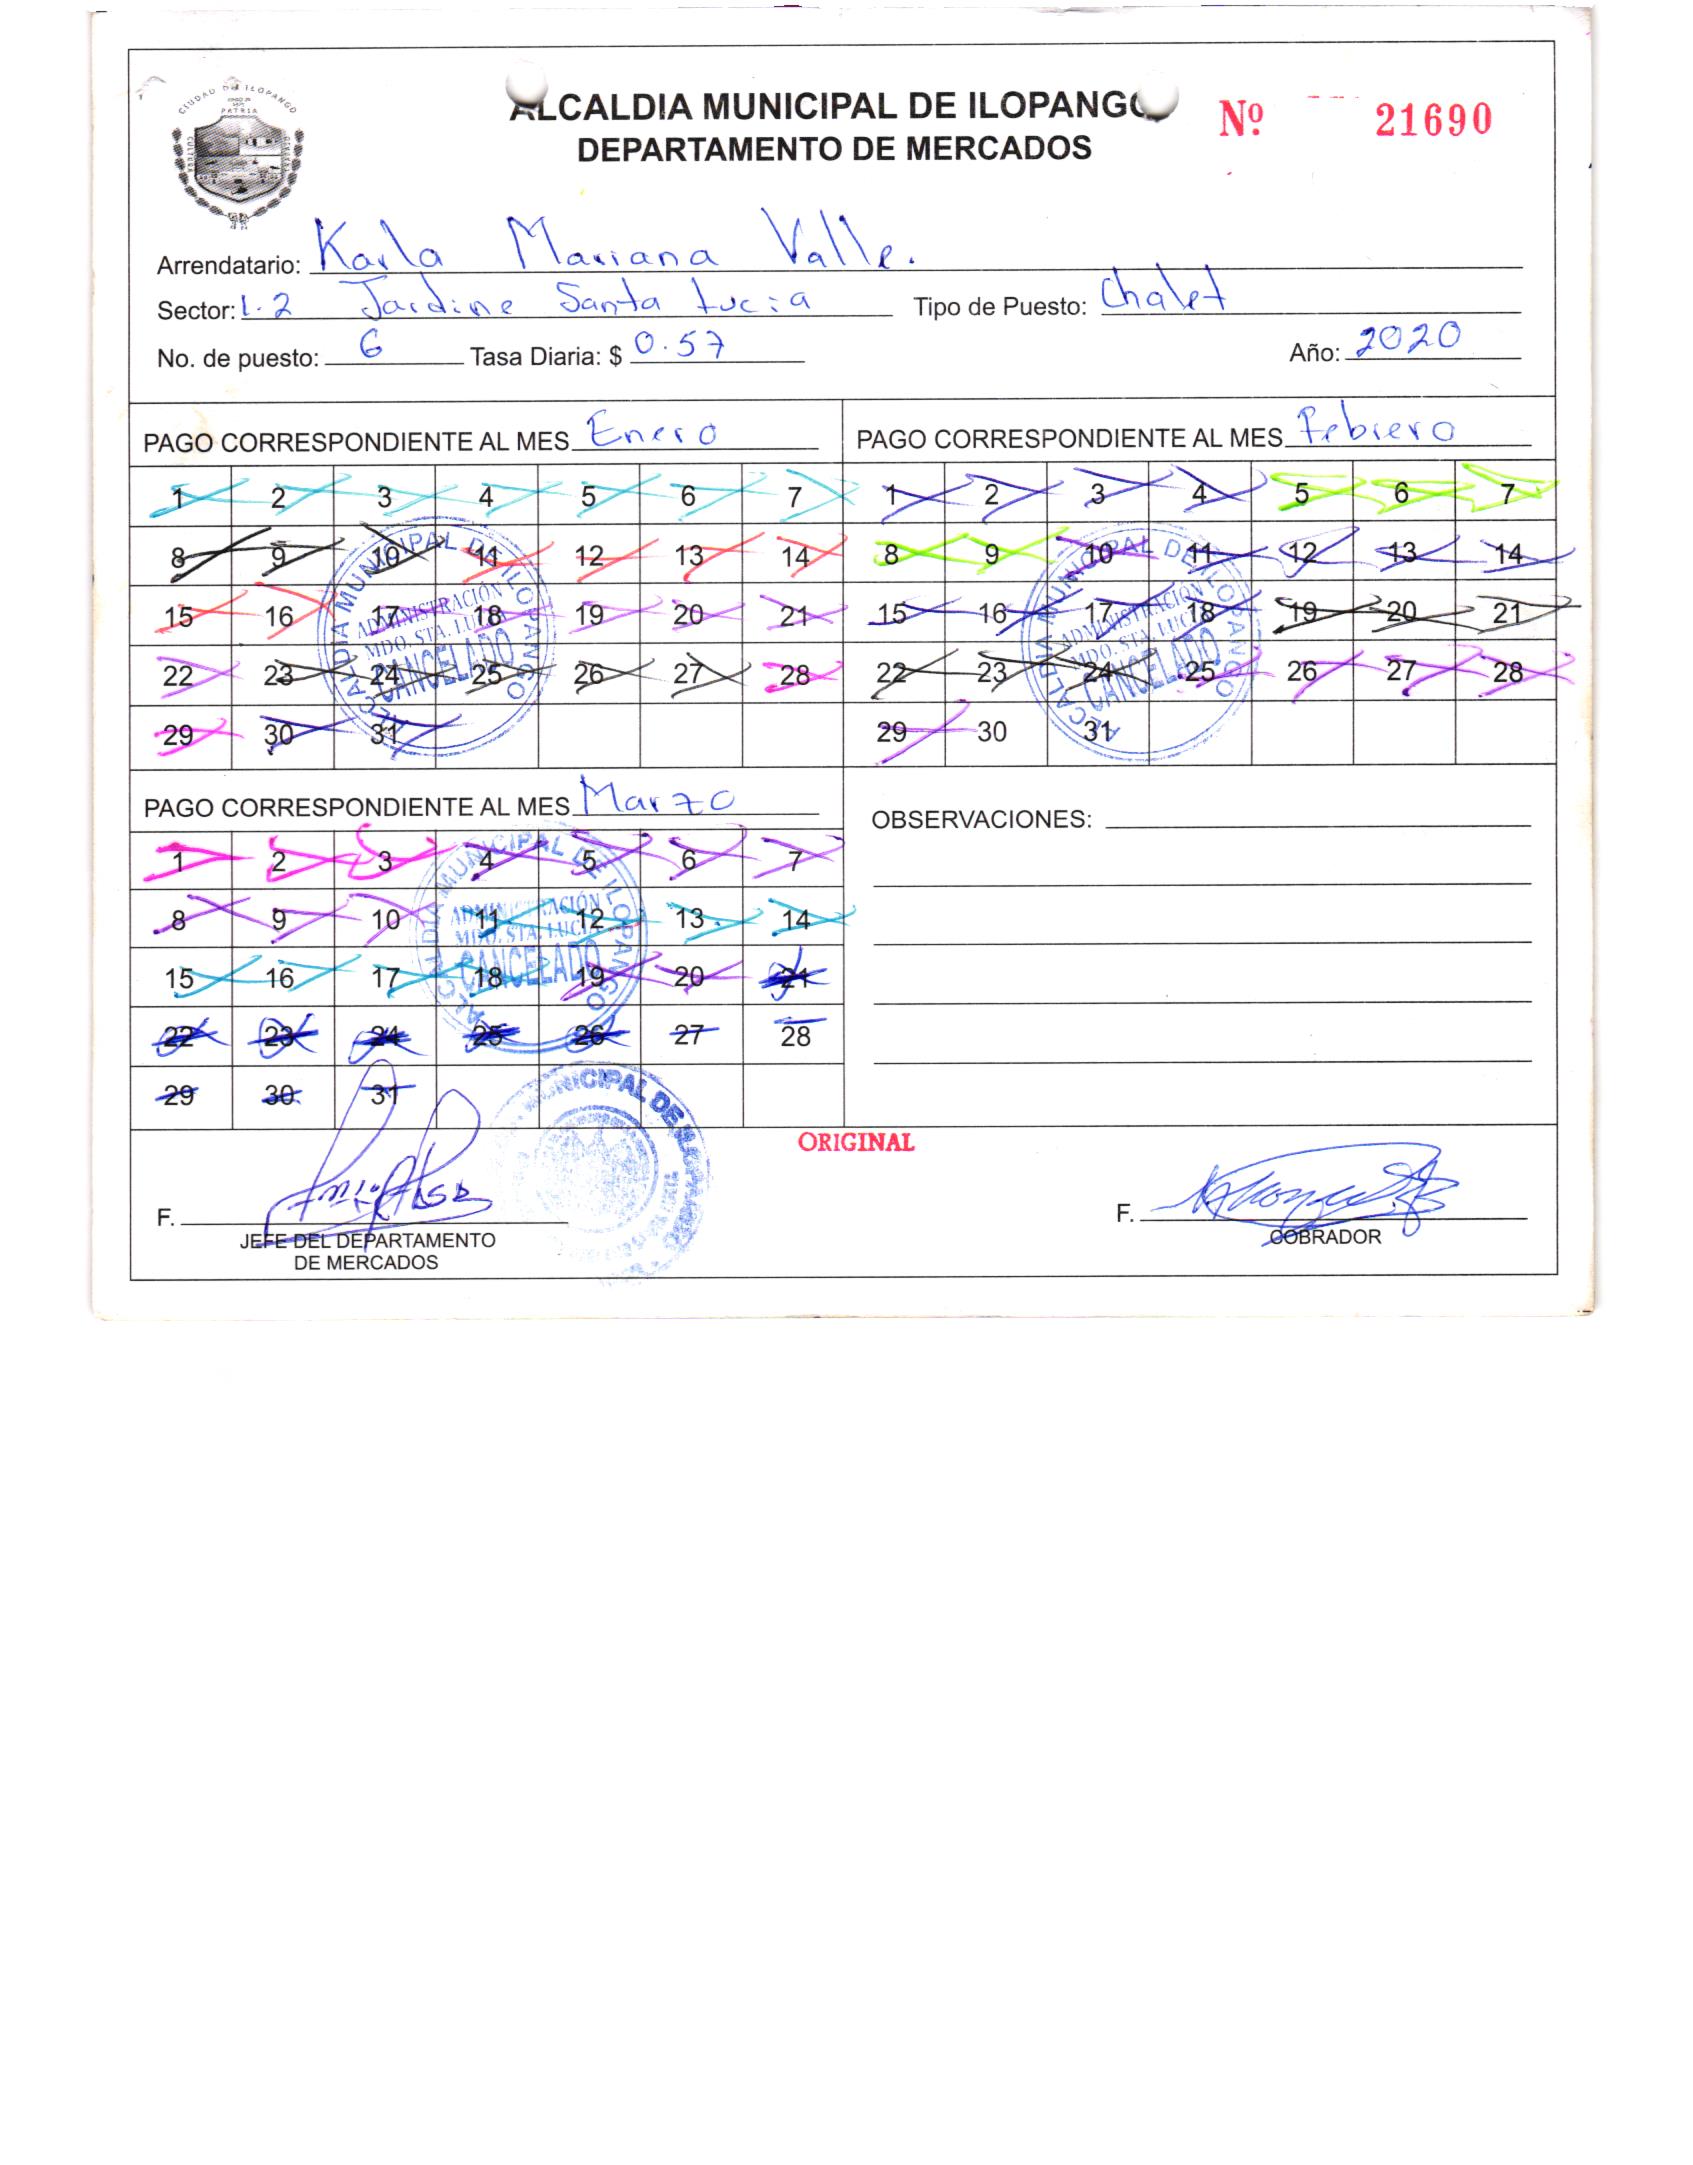 CIUDAD DE ILOPANGO
PATRIA
CULTURA
ALCALDIA MUNICIPAL DE ILOPANGO
DEPARTAMENTO DE MERCADOS
Nº 21690
Arrendatario: Karla Mariana Valle.
Sector: 1.2 Jardine Santa Lucia Tipo de Puesto: Chalet
No. de puesto: 6 Tasa Diaria: $ 0.57 Año: 2020
PAGO CORRESPONDIENTE AL MES Enero
1 2 3 4 5 6 7
8 9 10 11 12 13 14
15 16 17 18 19 20 21
22 23 24 25 26 27 28
29 30 31
ALCALDIA MUNICIPAL DE ILOPANGO
ADMINISTRACIÓN
MDO. STA. LUCIA
CANCELADO
PAGO CORRESPONDIENTE AL MES Febrero
1 2 3 4 5 6 7
8 9 10 11 12 13 14
15 16 17 18 19 20 21
22 23 24 25 26 27 28
29 30 31
ALCALDIA MUNICIPAL DE ILOPANGO
ADMINISTRACIÓN
MDO. STA. LUCIA
CANCELADO
PAGO CORRESPONDIENTE AL MES Marzo
1 2 3 4 5 6 7
8 9 10 11 12 13 14
15 16 17 18 19 20 21
22 23 24 25 26 27 28
29 30 31
ALCALDIA MUNICIPAL DE ILOPANGO
ADMINISTRACIÓN
MDO. STA. LUCIA
CANCELADO
OBSERVACIONES:
MUNICIPAL DE ILOPANGO
ORIGINAL
F.
JEFE DEL DEPARTAMENTO
DE MERCADOS
F.
COBRADOR